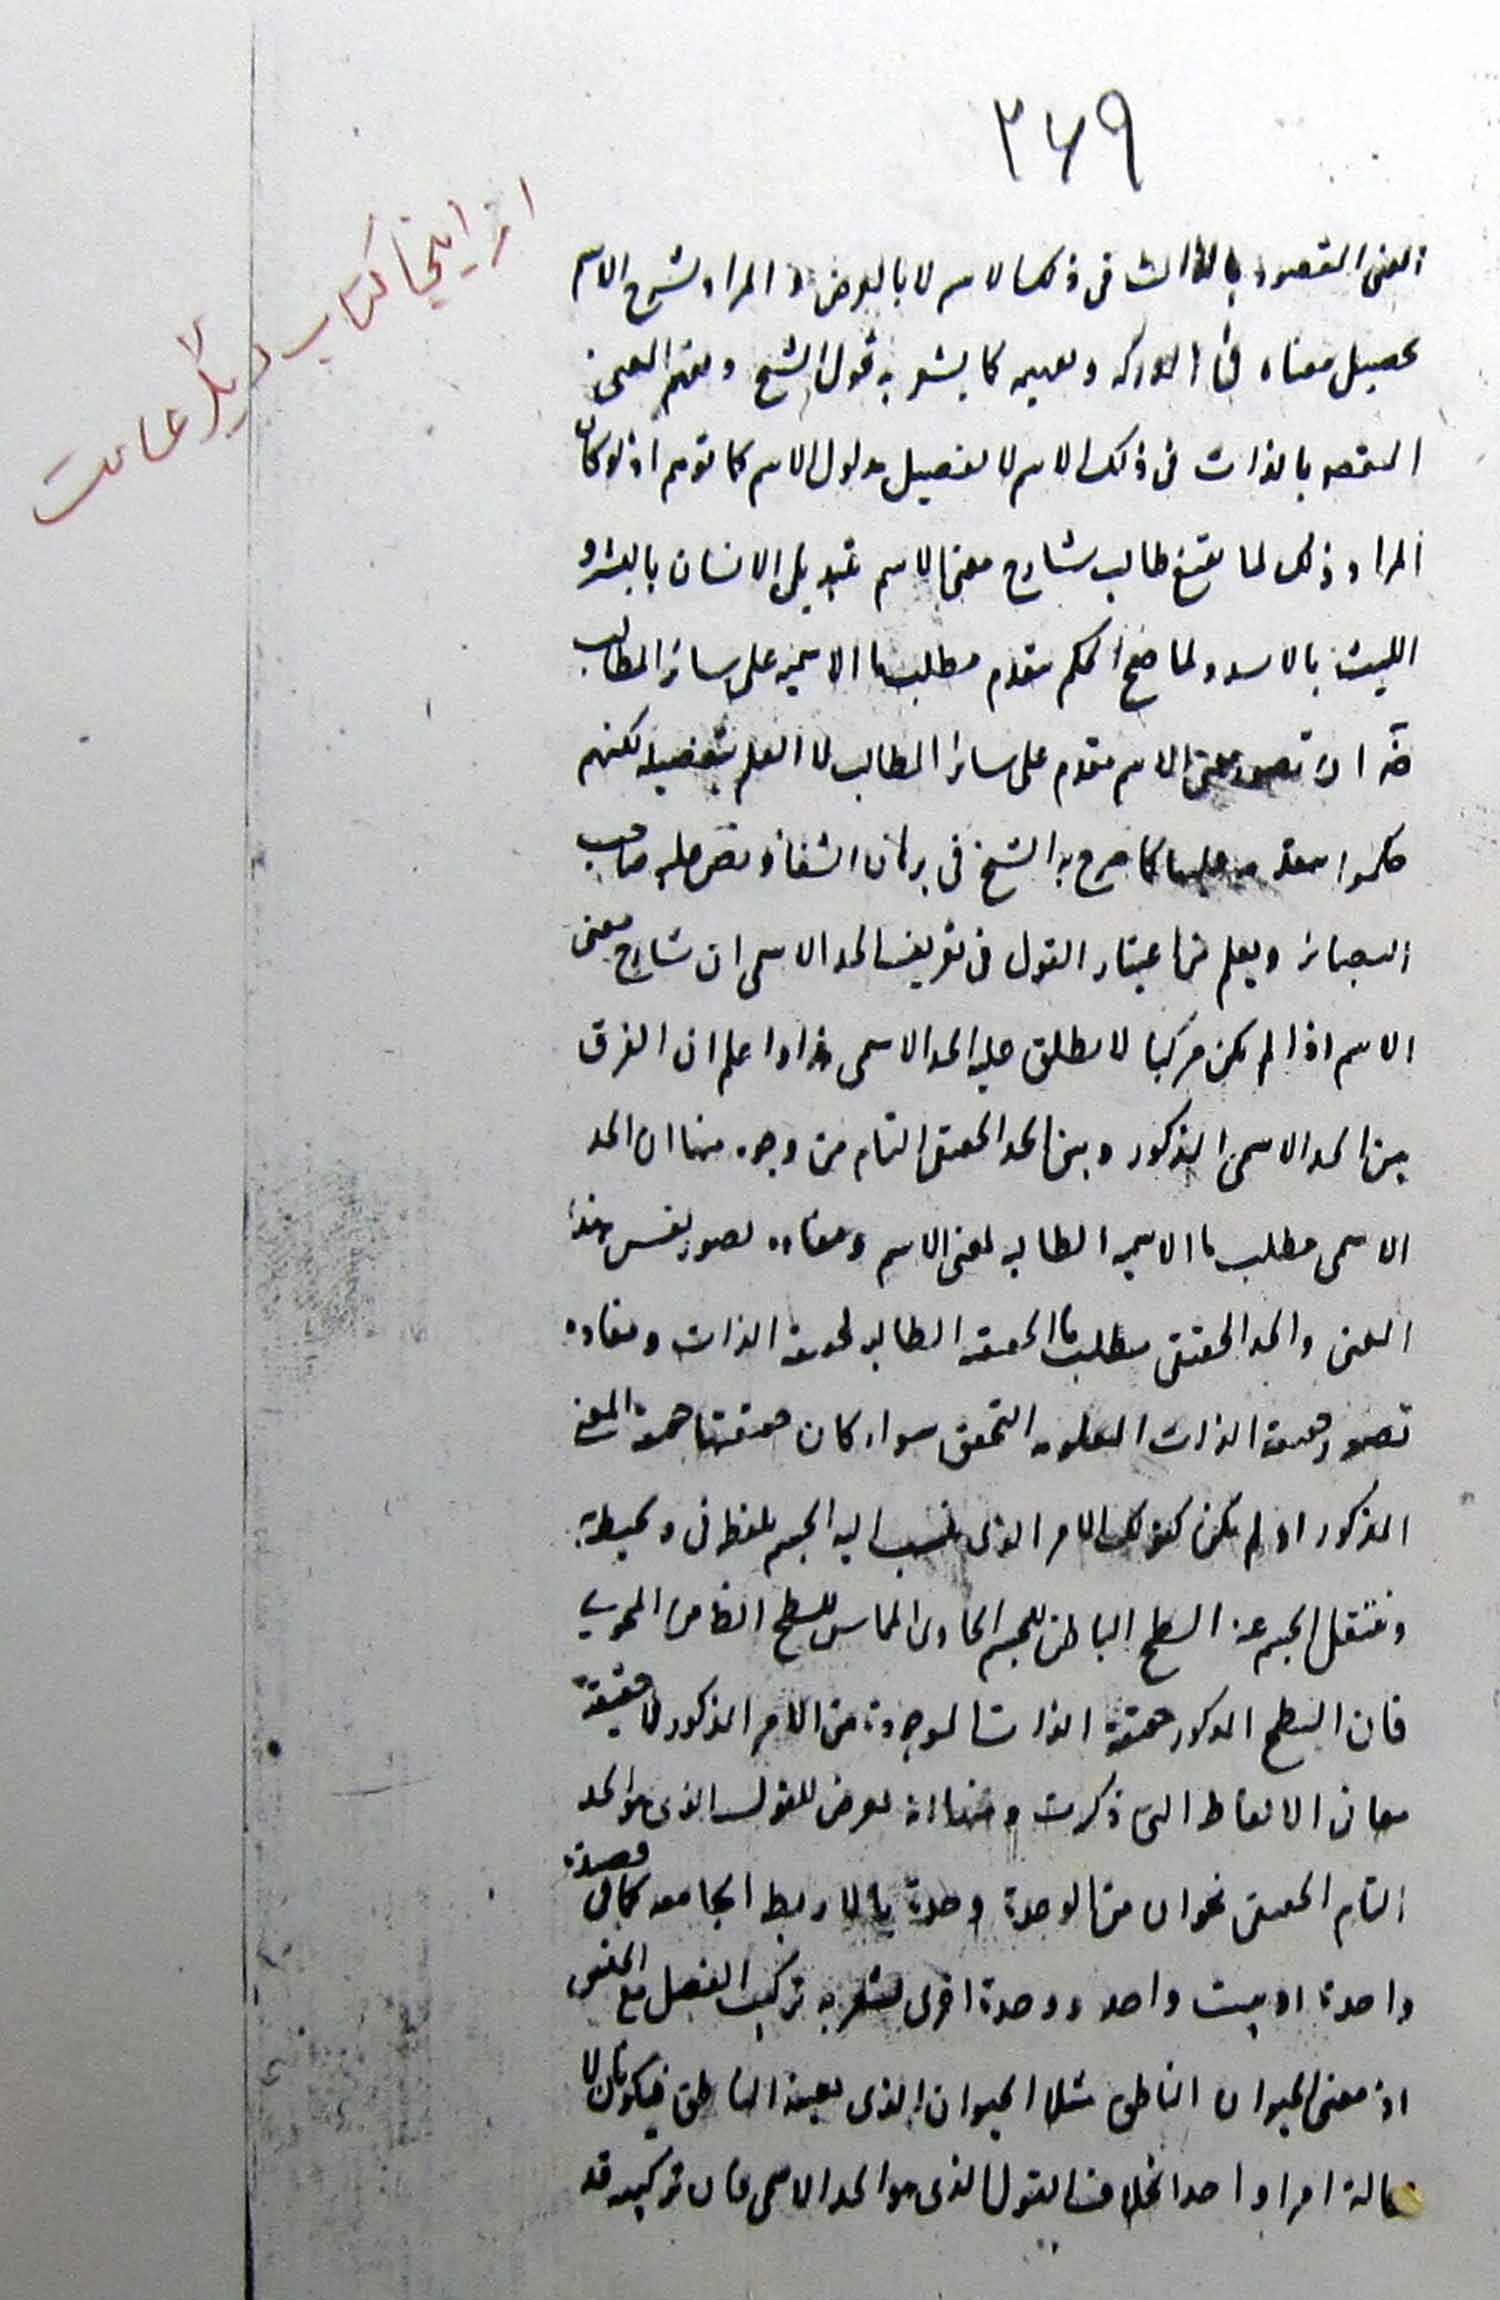 ٢٦٩
از اینجا کتاب دیگر است
المعنى المقصود بالذات فى ذلك الاسم لا بالعرض و المراد بشرح الاسم
تحصيل معناه فى المدركة و تفهيمه كما يشعر به قول الشيخ و تفهم المعنى
المقصود بالذات فى ذلك الاسم لا تفصيل مدلول الاسم كما توهم اذ لو كان
المراد ذلك لما يقنع طالب شارح معنى الاسم بتبديل الانسان بالبشر و
الليث بالاسد و لما صح الحكم بتقدم مطلب ما الاسميه على سائر المطالب
ضرورة ان تصور معنى الاسم مقدم على سائر المطالب لا العلم بتفصيله لكنهم
حكموا بتقدمه عليها كما صرح به الشيخ فى برهان الشفاء و نص عليه صاحب
البصائر و يعلم من اعتبار القول فى تعريف الحد الاسمى ان شارح معنى
الاسم اذا لم يكن مركبا لا يطلق عليه الحد الاسمى هذا و اعلم ان الفرق
بين الحد الاسمى المذكور و بين الحد الحقيقى التام من وجوه منها ان الحد
الاسمى مطلب ما الاسميه الطالبه لمعنى الاسم و مفاده تصور نفس هذا
المعنى و الحد الحقيقى مطلب ما الحقيقه الطالبه لحقيقة الذات و مفاده
تصور حقيقة الذات المعلومه التحقق سواء كان حقيقتها حقيقة المعنى
المذكور او لم يكن كقولك الامر الذى ينسب اليه الجسم بلفظ فى و يحيط به
و ينتقل الجسم عنه السطح الباطن للجسم الحاوى المماس للسطح الظاهر من المحوى
فان السطح المذكور حقيقة الذات الموجودة من الامر المذكور لا حقيقة
معانى الالفاظ التى ذكرت و منها انه يعرض للقول الذى هو الحد
التام الحقيقى نحوان من الوحدة وحدة بالاربطة الجامعه كما فى قصيدة
واحدة او بيت واحد و وحدة اخرى يشعر به تركيب الفصل مع الجنس
اذ معنى الحيوان الناطق مثلا الحيوان الذى بعينه الناطق فيكونان لا
محالة امرا واحدا بخلاف القول الذى هو الحد الاسمى فان تركيبه قد